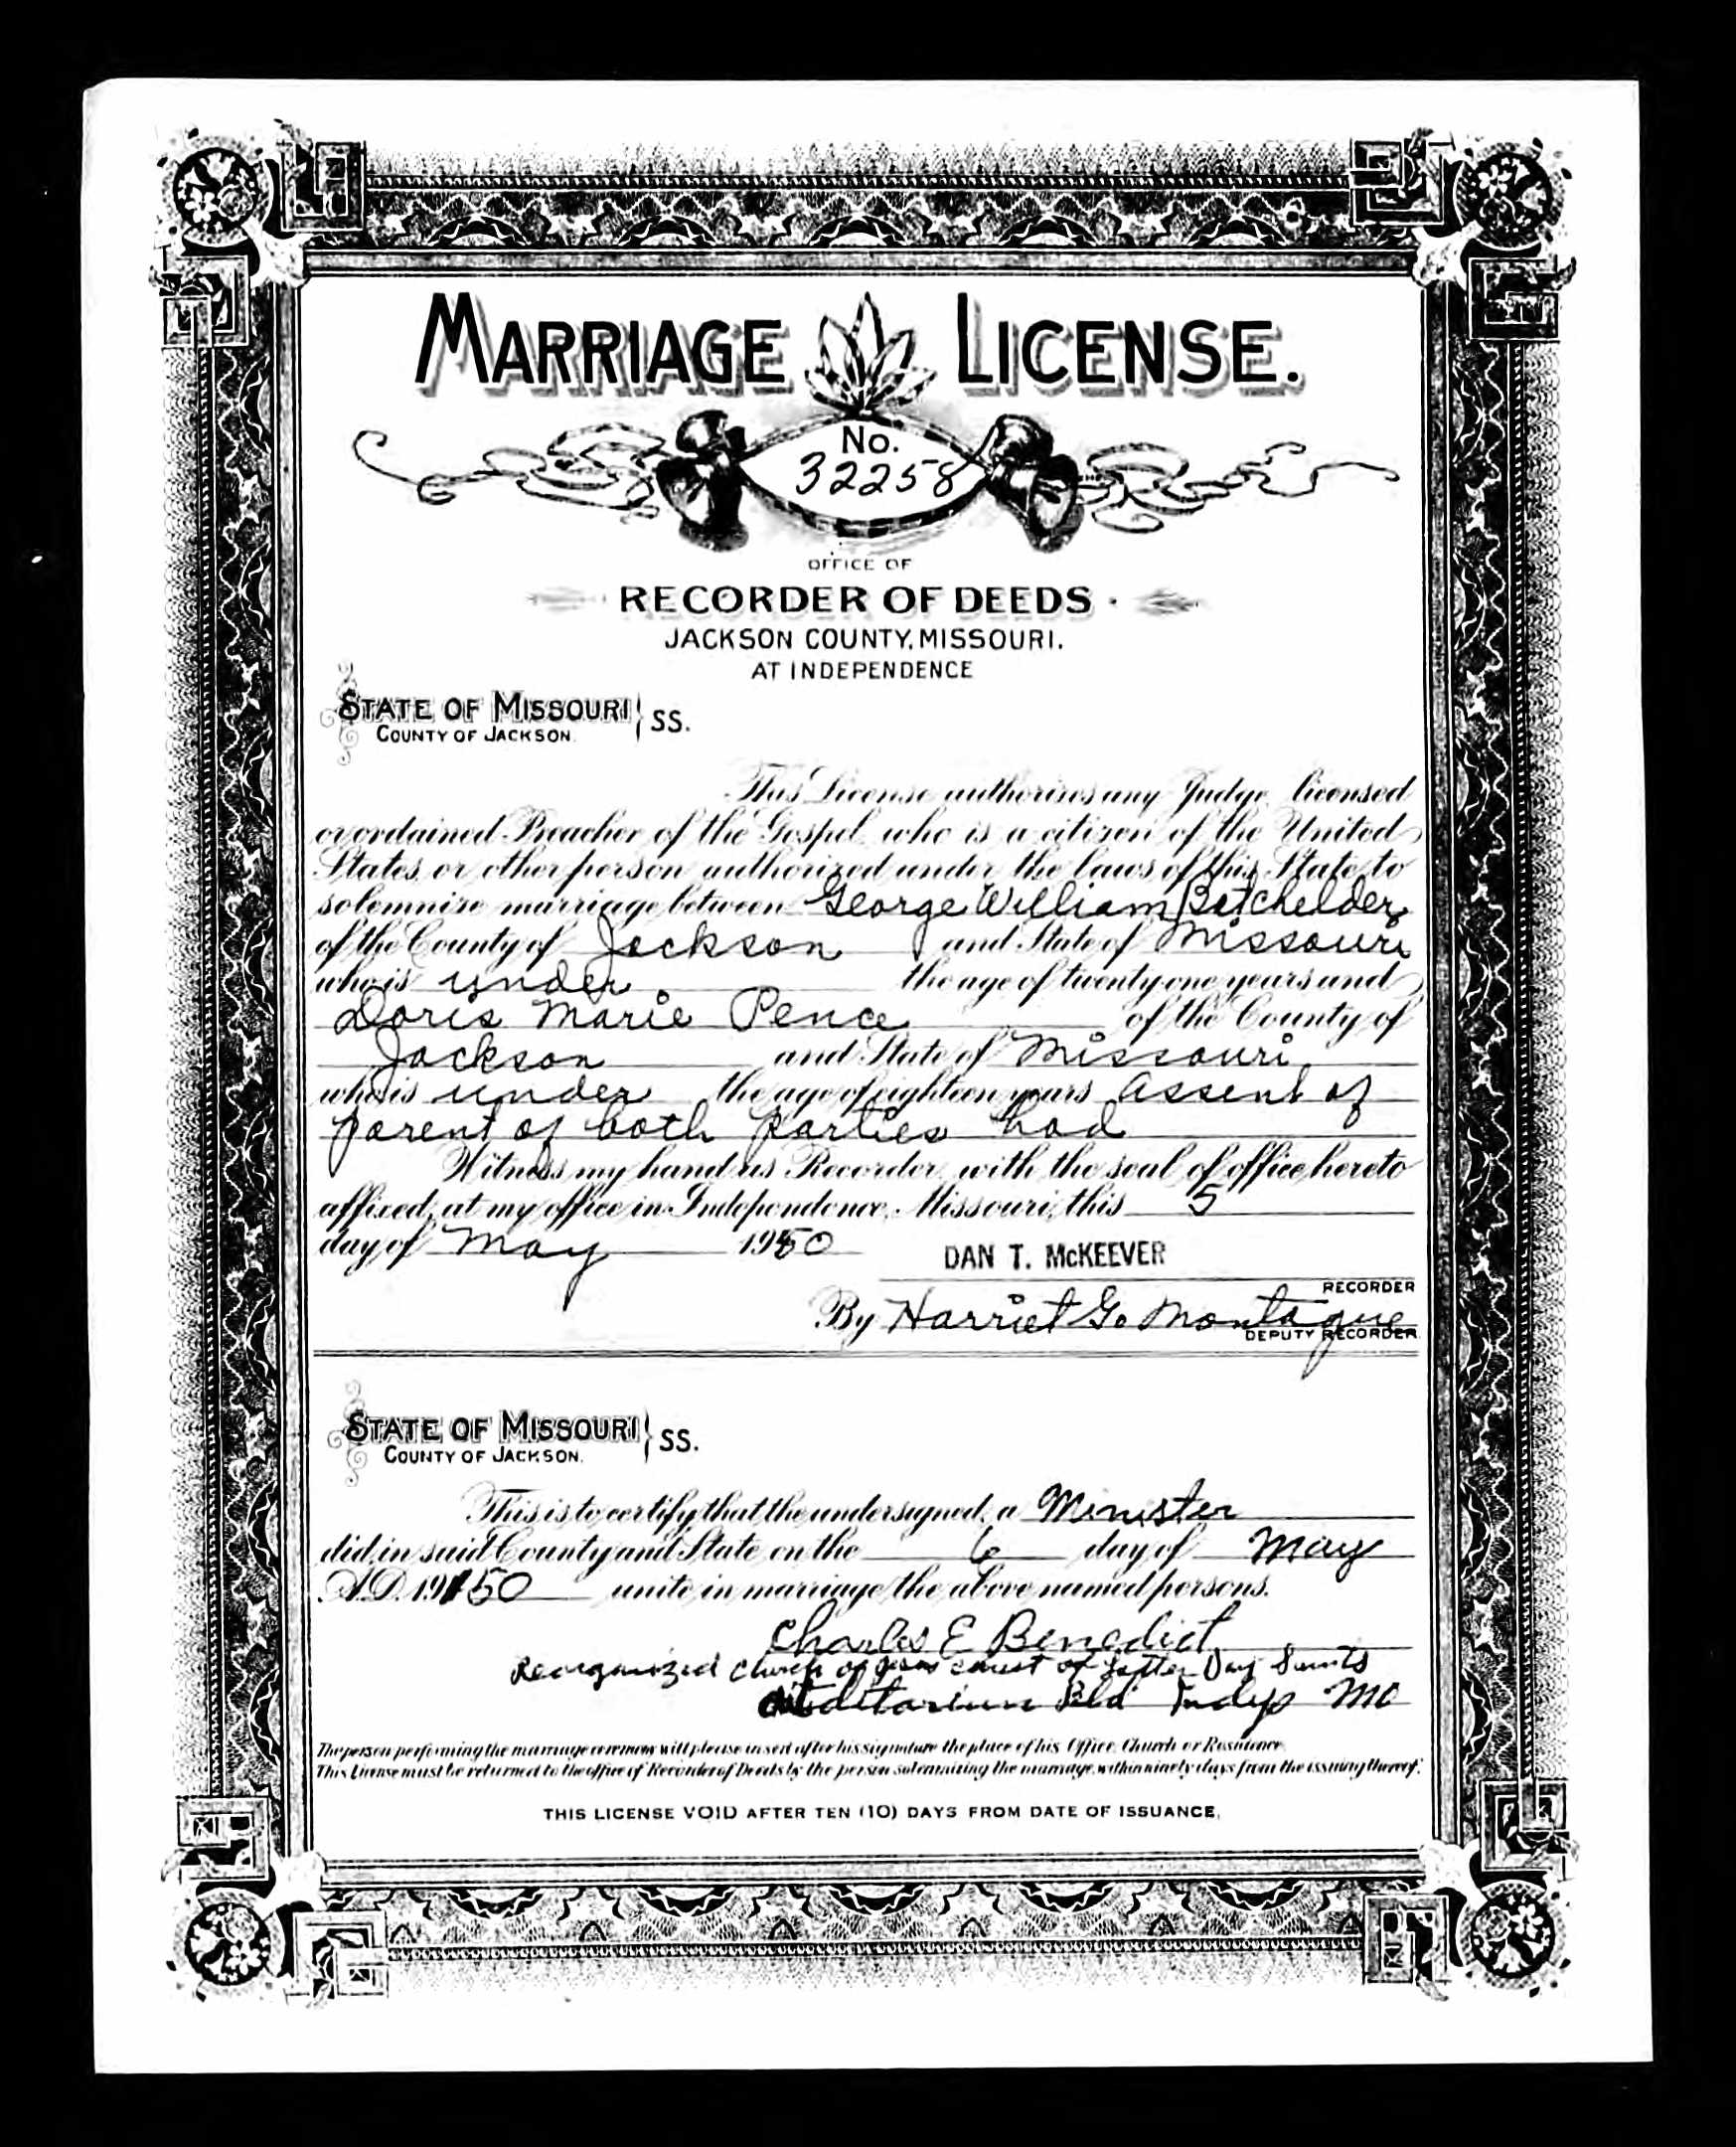 MARRIAGE LICENSE.
No.
32258
OFFICE OF
RECORDER OF DEEDS
JACKSON COUNTY, MISSOURI.
AT INDEPENDENCE
STATE OF MISSOURI
COUNTY OF JACKSON. SS.
This License authorizes any Judge, licensed
or ordained Preacher of the Gospel, who is a citizen of the United
States, or other person authorized under the laws of this State, to
solemnize marriage between George William Batchelder
of the County of Jackson and State of Missouri
who is under the age of twenty-one years and
Doris Marie Pence of the County of
Jackson and State of Missouri
who is under the age of eighteen years assent of
parent of both parties had
Witness my hand as Recorder, with the seal of office hereto
affixed, at my office in Independence, Missouri, this 5
day of May 1950
DAN T. McKEEVER
RECORDER
By Harriet G. Montague
DEPUTY RECORDER
STATE OF MISSOURI
COUNTY OF JACKSON. SS.
This is to certify that the undersigned, a Minister
did, in said County and State, on the 6 day of May
A.D. 1950 unite in marriage the above named persons.
Charles E Benedict
Reorganized Church of Jesus Christ of Latter Day Saints
Auditorium Bld Indep Mo
The person performing the marriage ceremony will please insert after his signature the place of his Office, Church or Residence.
This License must be returned to the office of Recorder of Deeds by the person solemnizing the marriage, within ninety days from the issuing thereof.
THIS LICENSE VOID AFTER TEN (10) DAYS FROM DATE OF ISSUANCE.